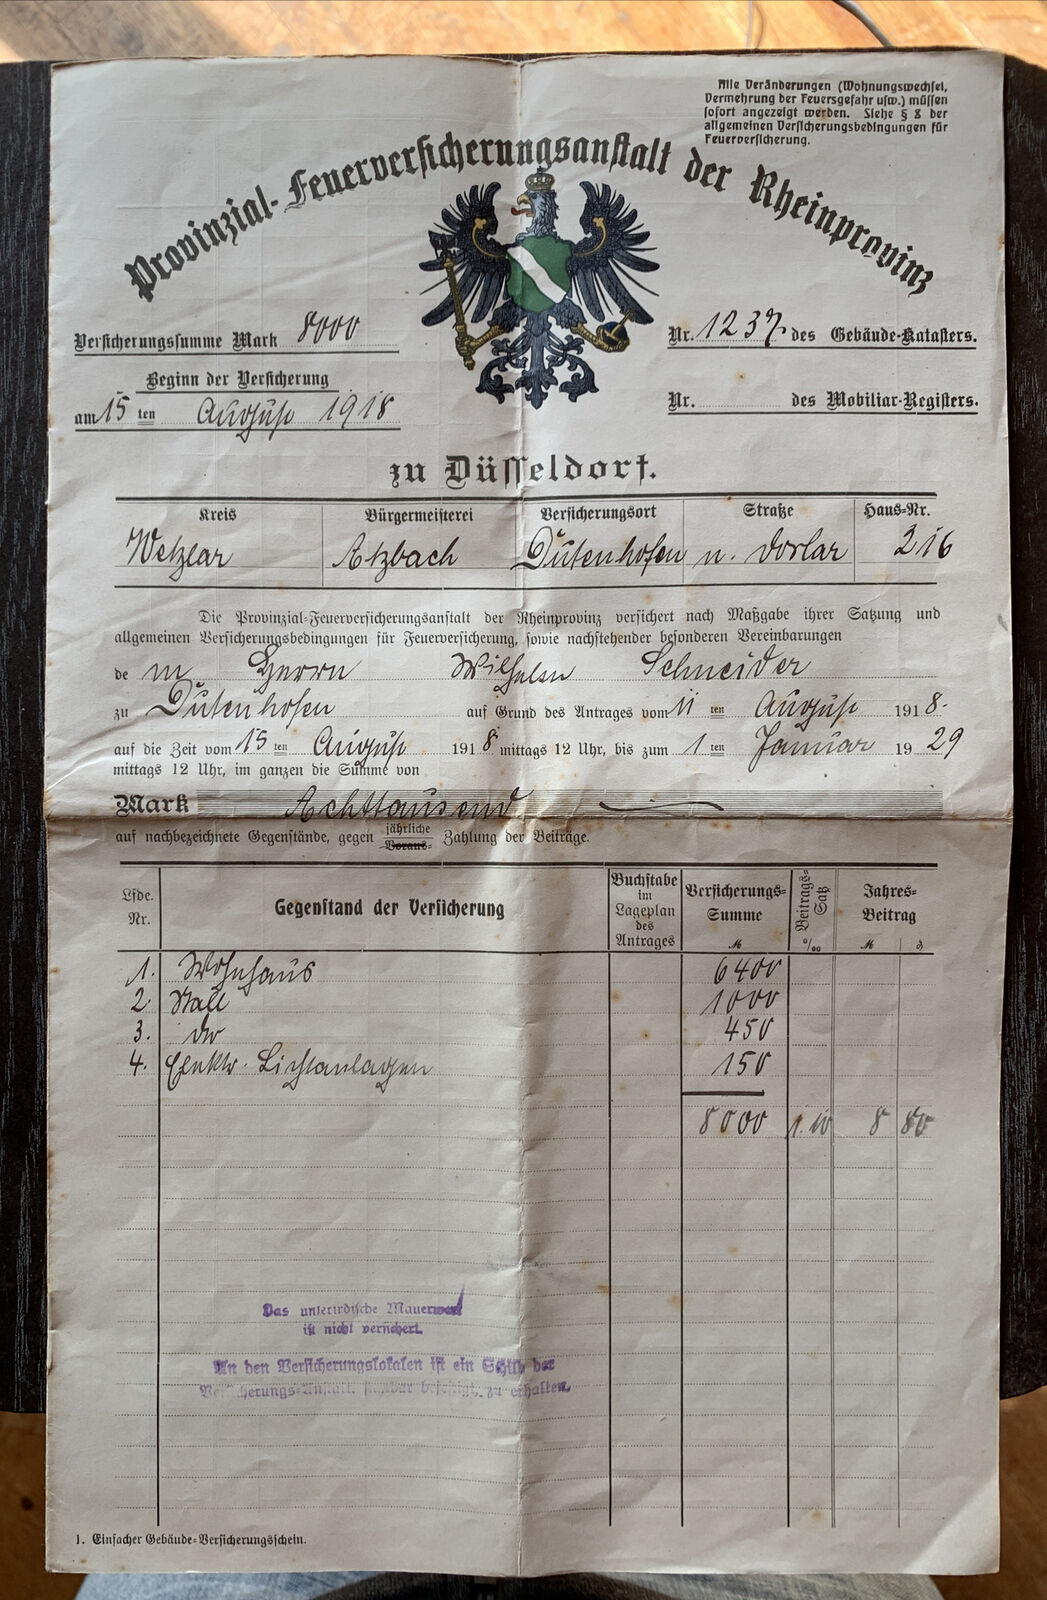 Alle Veränderungen (Wohnungswechsel,
Vermehrung der Feuersgefahr usw.) müssen
sofort angezeigt werden. Siehe § 8 der
allgemeinen Versicherungsbedingungen für
Feuerversicherung.
Provinzial-Feuerversicherungsanstalt der Rheinprovinz
Versicherungssumme Mark 8000
Nr. 1237. des Gebäude-Katasters.
Beginn der Versicherung
am 15 ten August 1918
Nr. des Mobiliar-Registers.
zu Düsseldorf.
Kreis Bürgermeisterei Versicherungsort Straße Haus-Nr.
Wetzlar Atzbach Dutenhofen n. Dorlar 216
Die Provinzial-Feuerversicherungsanstalt der Rheinprovinz versichert nach Maßgabe ihrer Satzung und
allgemeinen Versicherungsbedingungen für Feuerversicherung, sowie nachstehender besonderen Vereinbarungen
de m Herrn Wilhelm Schneider
zu Dutenhofen auf Grund des Antrages vom 11 ten August 1918.
auf die Zeit vom 15 ten August 1918 mittags 12 Uhr, bis zum 1 ten Januar 1929
mittags 12 Uhr, im ganzen die Summe von
Mark Achttausend
auf nachbezeichnete Gegenstände, gegen jährliche Voraus- Zahlung der Beiträge.
Lfde. Nr. Gegenstand der Versicherung Buchstabe im Lageplan des Antrages Versicherungs-Summe M Beitrags-Satz ‰ Jahres-Beitrag M ₰
1. Wohnhaus 6400
2. Stall 1000
3. do 450
4. Elektr. Lichtanlagen 150
8000 1.10 8 80
Das unterirdische Mauerwerk
ist nicht versichert.
An den Versicherungslokalen ist ein Schild der
Versicherungs-Anstalt sichtbar befestigt zu erhalten.
1. Einfacher Gebäude-Versicherungsschein.